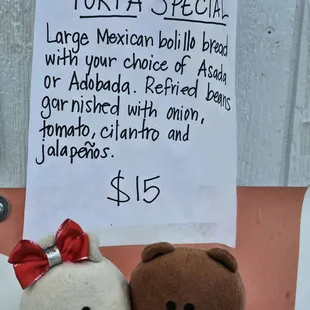 TORTA SPECIAL
Large Mexican bolillo bread
with your choice of Asada
or Adobada. Refried beans
garnished with onion,
tomato, cilantro and
jalapeños.
$15